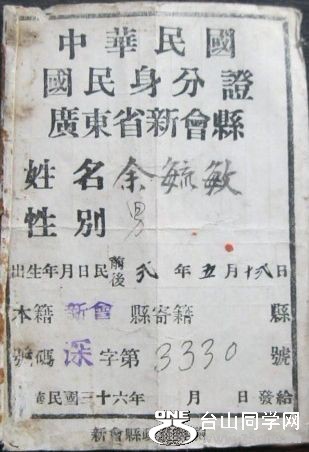 中華民國
國民身分證
廣東省新會縣
姓名余毓敏
性別男
出生年月日民前後 年五月十八日
本籍新會縣寄籍 縣
號碼深字第3330號
民國三十六年 月 日發給
新會縣
ONE
台山同学网